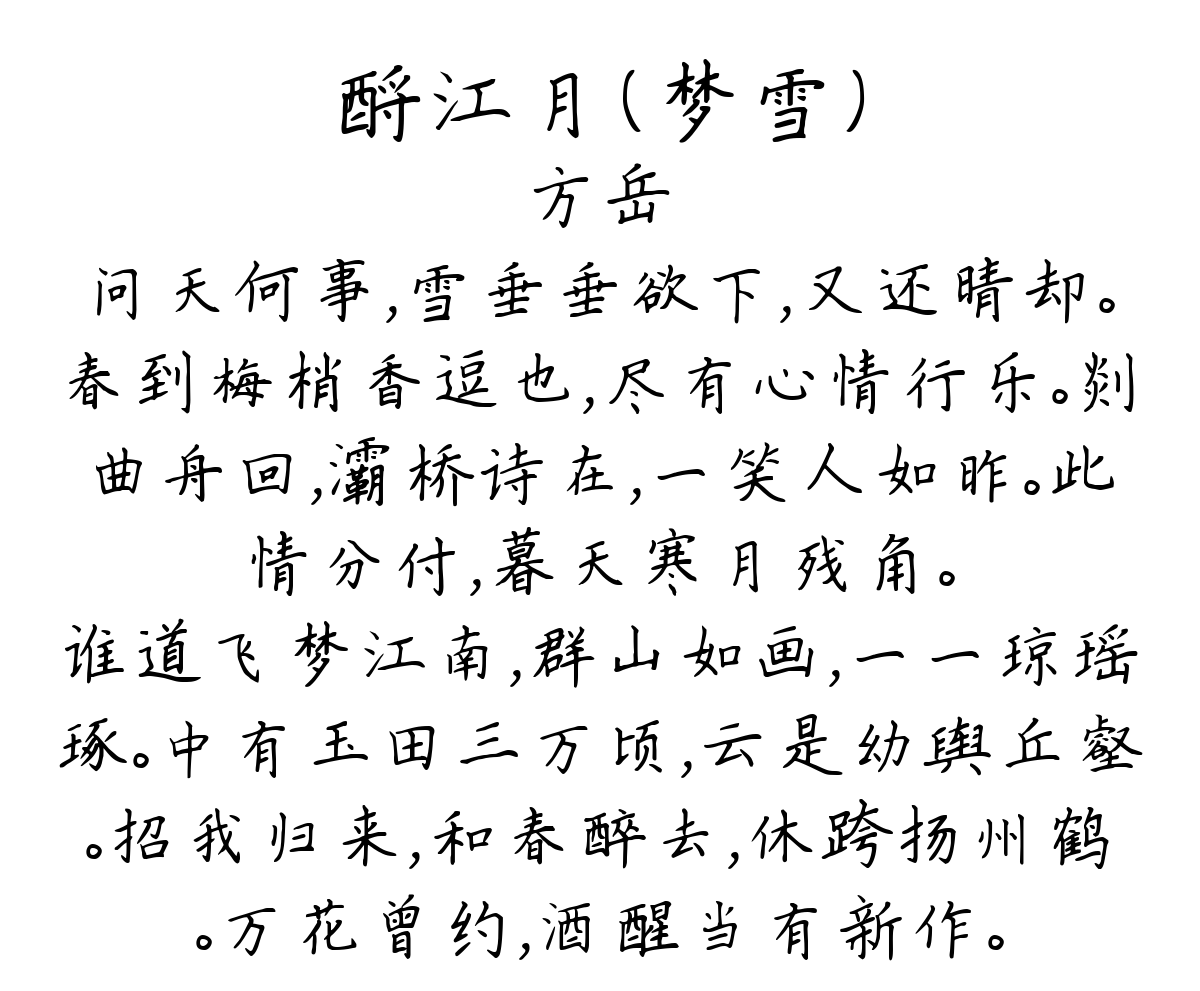 酹江月(梦雪)
方岳
问天何事,雪垂垂欲下,又还晴却。
春到梅梢香逗也,尽有心情行乐。剡
曲舟回,灞桥诗在,一笑人如昨。此
情分付,暮天寒月残角。
谁道飞梦江南,群山如画,一一琼瑶
琢。中有玉田三万顷,云是幼舆丘壑
。招我归来,和春醉去,休跨扬州鹤
。万花曾约,酒醒当有新作。